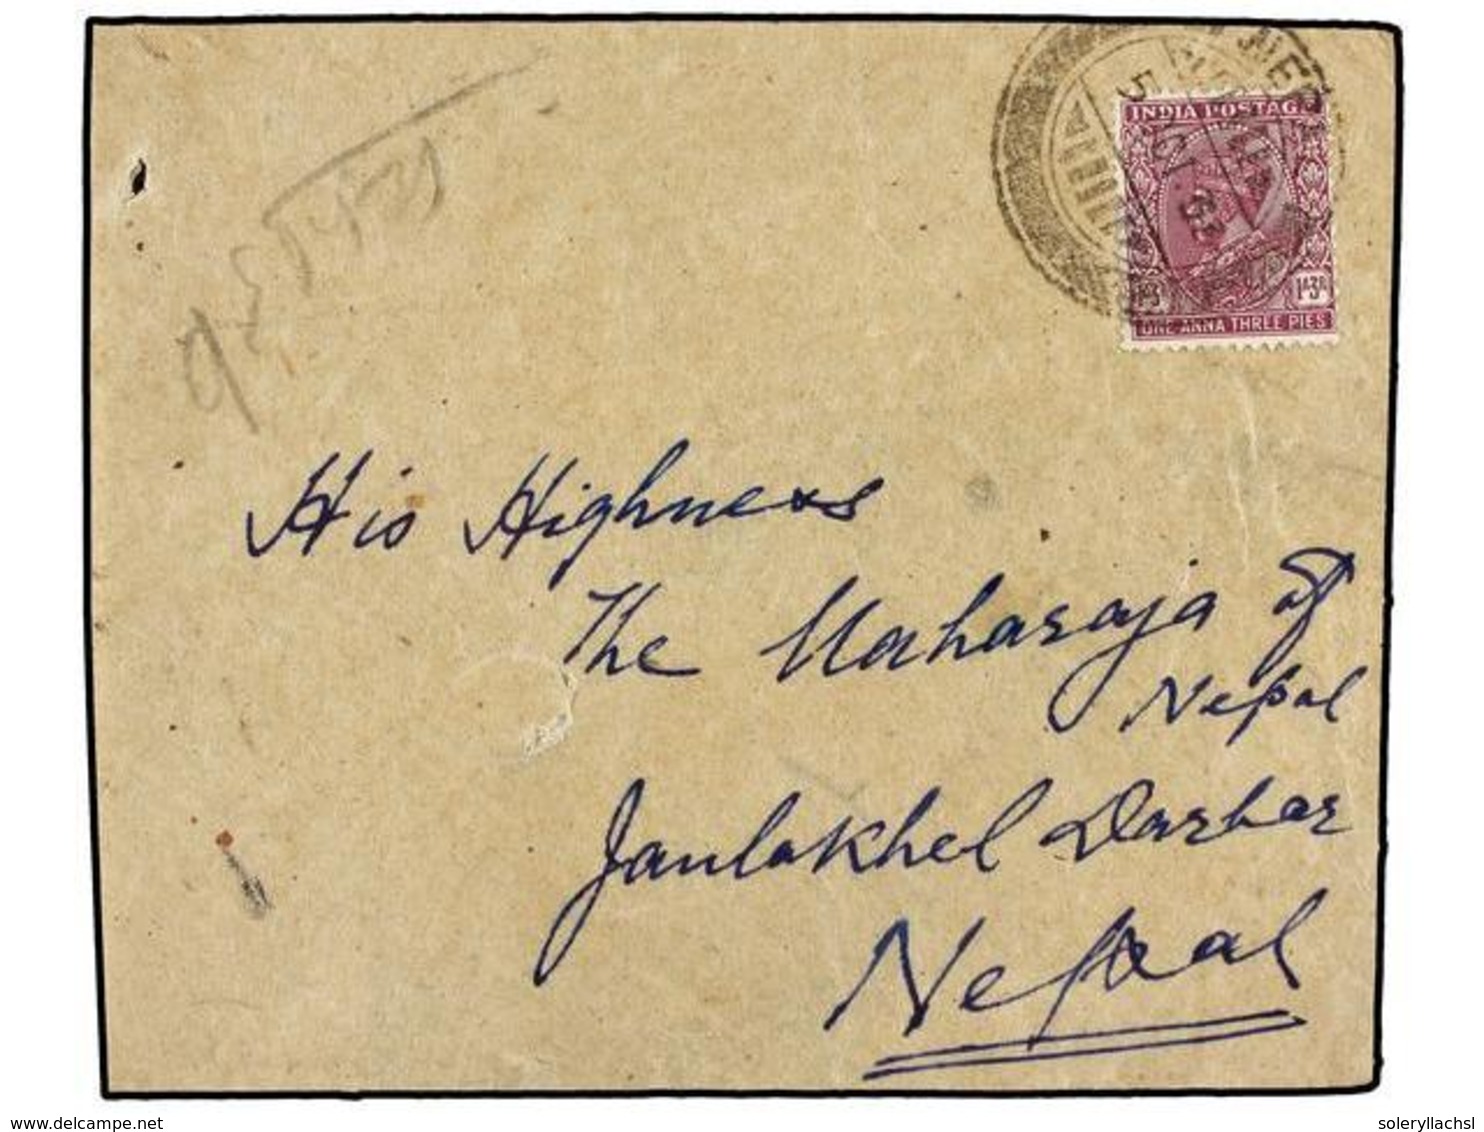 INDIA POSTAGE
1ᴬ3ᴾ
ONE ANNA THREE PIES
His Highness
The Maharaja of
Nepal
Jaulakhel Darbar
Nepal
delcampe.net
soleryllachsl